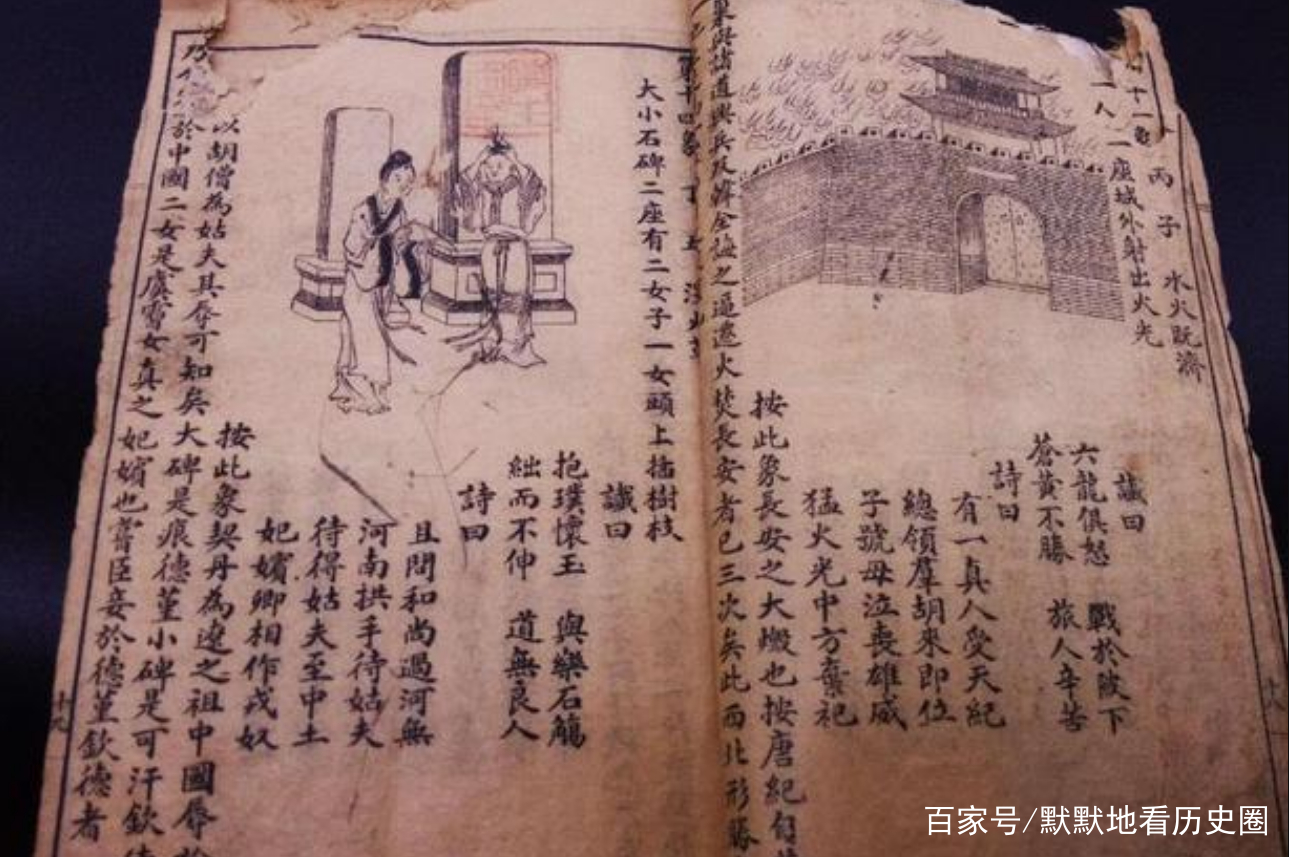 丙子 水火既濟
一人一座城外射出火光
讖曰
六龍俱怒 戰於陂下
蒼黃不勝 旅人辛苦
詩曰
有一真人受天紀
總領羣胡來即位
子號母泣喪雄威
猛火光中方棄祀
按此象長安之大燬也按唐紀自
與諸道興兵及韓全誨之逼遷火焚長安者已三次矣此西北形勝
大小石碑二座有二女子一女頭上插樹枝
讖曰
抱璞懷玉 與樂石觴
絀而不伸 道無良人
詩曰
且問和尚過河無
河南拱手待姑夫
待得姑夫至中土
妃嬪卿相作戎奴
按此象契丹為遼之祖中國辱於
以胡僧為姑夫其辱可知矣大碑是痕德堇小碑是可汗欽德
於中國二女是虞嘗女真之妃嬪也嘗臣妾於德堇欽德者
十九
十八
百家号/默默地看历史圈